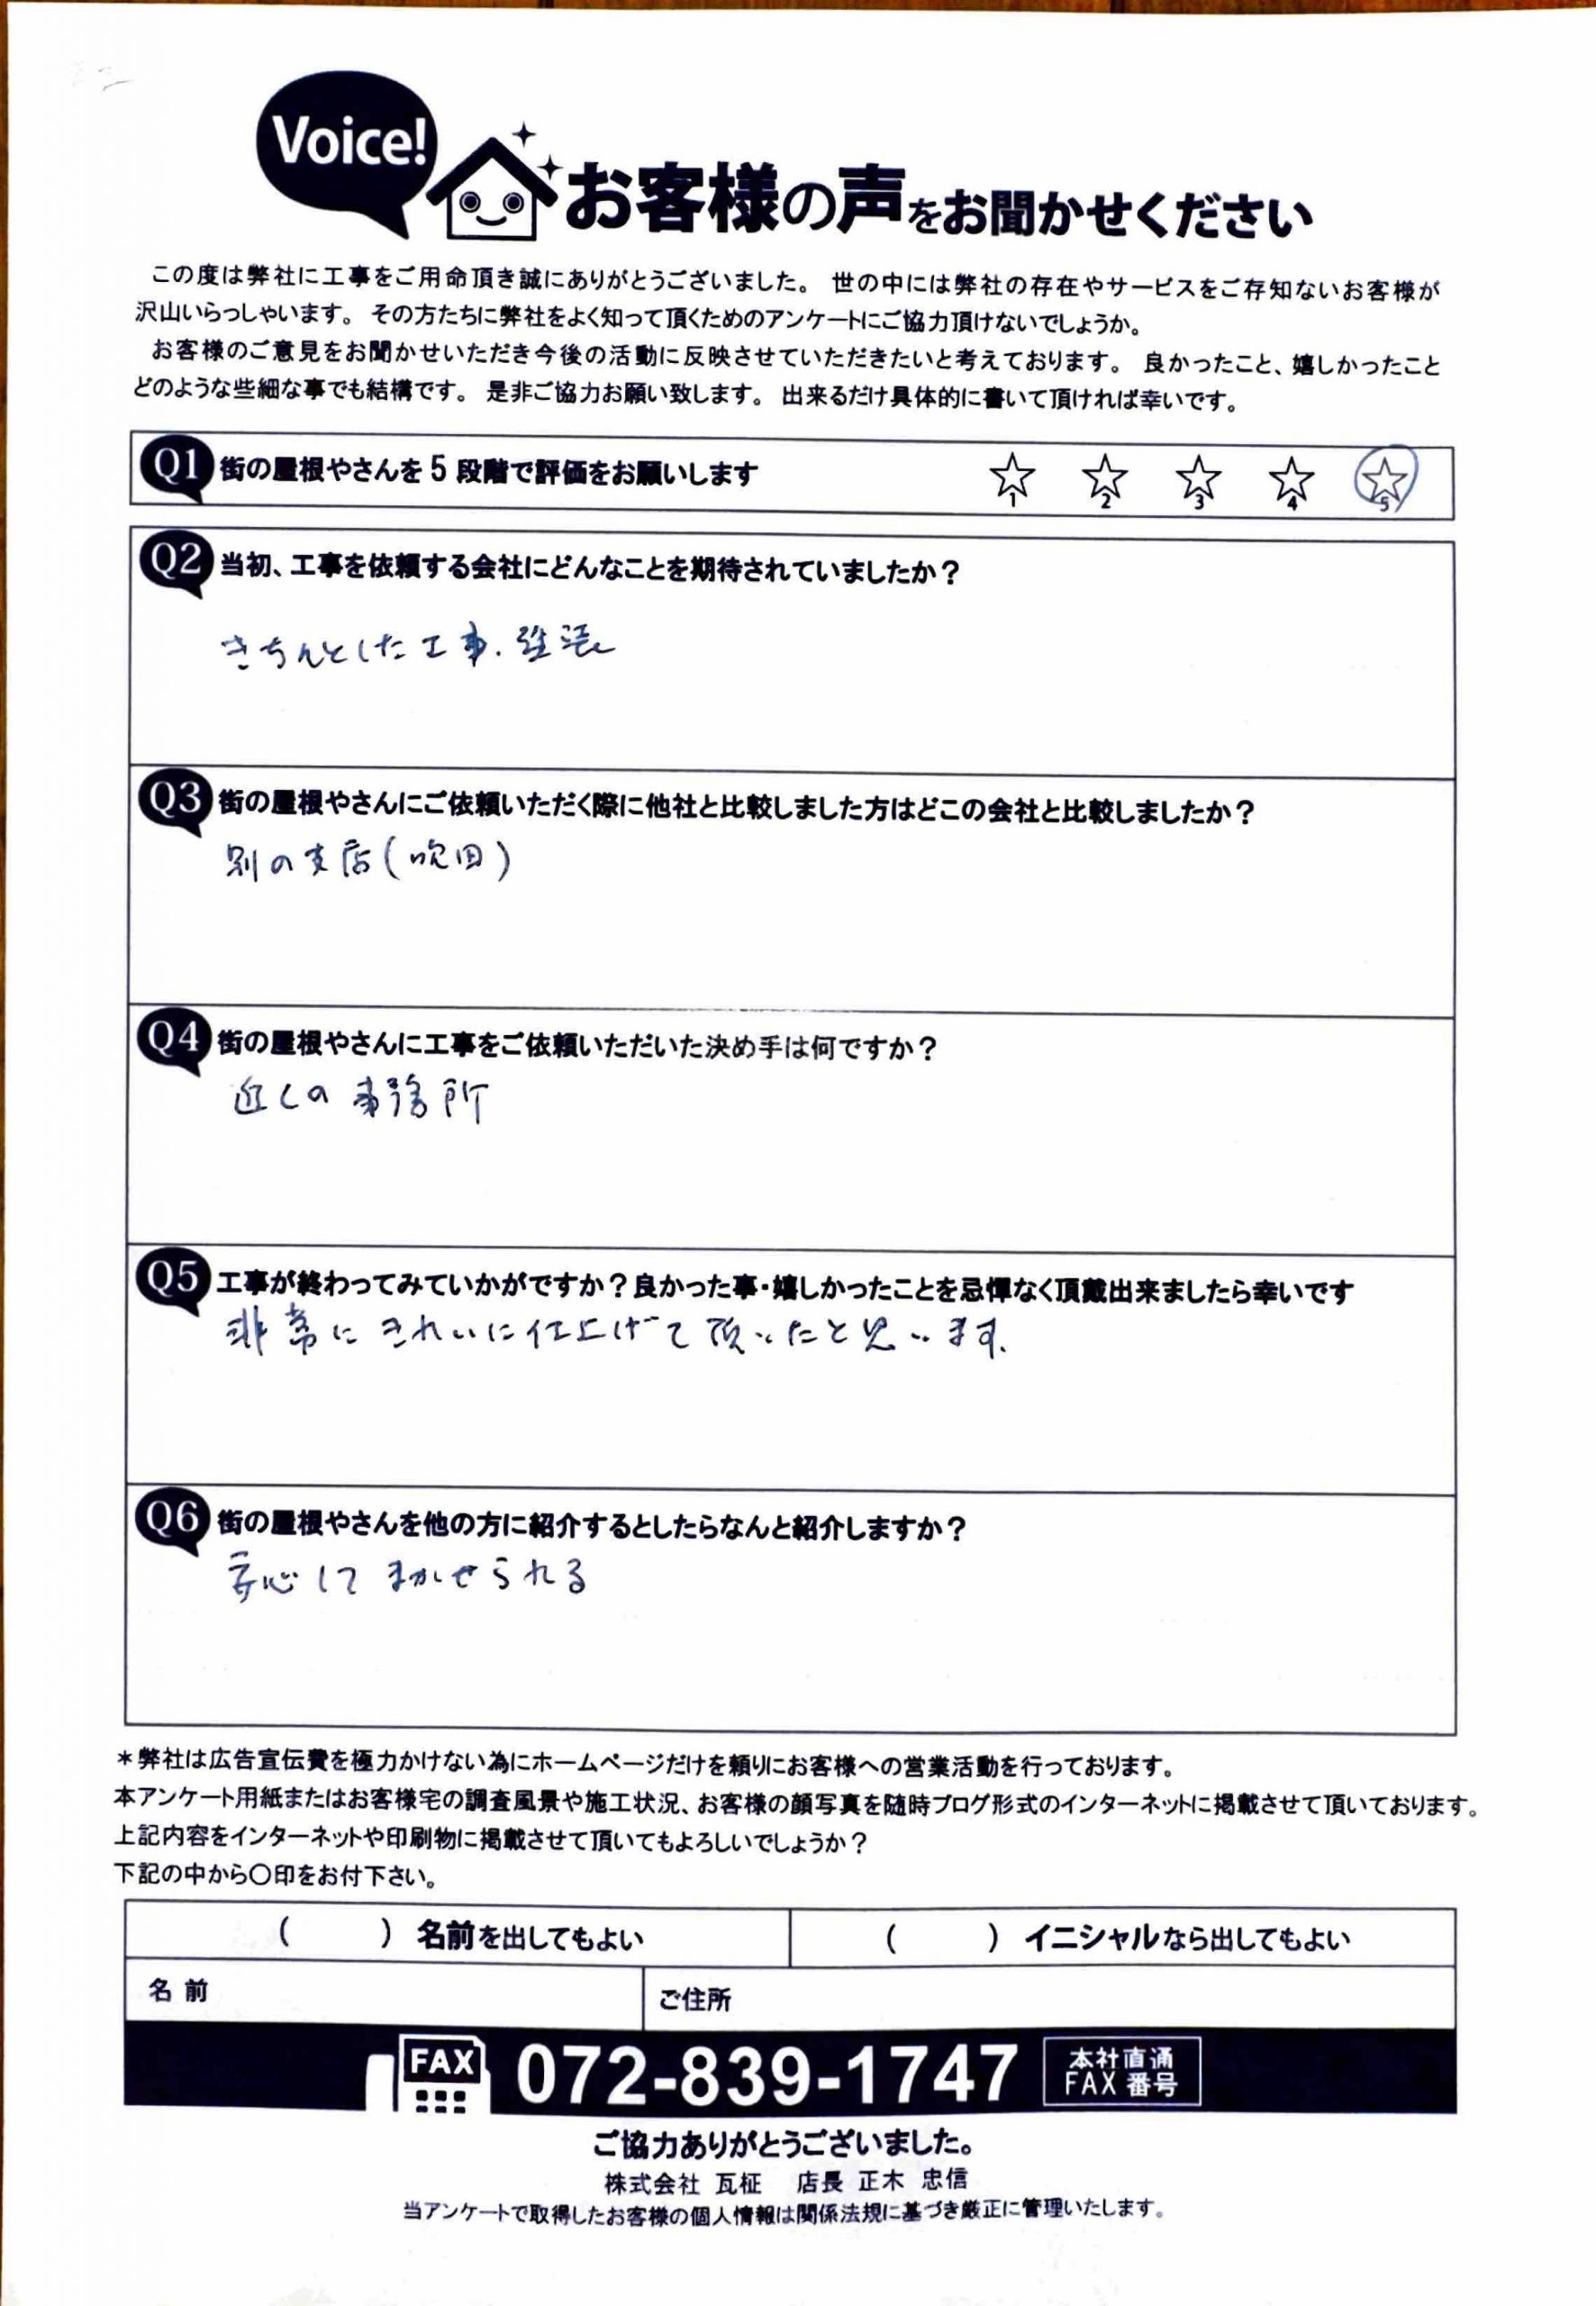 Voice!
お客様の声をお聞かせください
この度は弊社に工事をご用命頂き誠にありがとうございました。 世の中には弊社の存在やサービスをご存知ないお客様が
沢山いらっしゃいます。 その方たちに弊社をよく知って頂くためのアンケートにご協力頂けないでしょうか。
お客様のご意見をお聞かせいただき今後の活動に反映させていただきたいと考えております。 良かったこと、嬉しかったこと
どのような些細な事でも結構です。 是非ご協力お願い致します。 出来るだけ具体的に書いて頂ければ幸いです。
Q1 街の屋根やさんを5段階で評価をお願いします ☆1 ☆2 ☆3 ☆4 ☆5
Q2 当初、工事を依頼する会社にどんなことを期待されていましたか？
きちんとした工事.
Q3 街の屋根やさんにご依頼いただく際に他社と比較しました方はどこの会社と比較しましたか？
別の支店(吹田)
Q4 街の屋根やさんに工事をご依頼いただいた決め手は何ですか？
近くの事務所
Q5 工事が終わってみていかがですか？良かった事・嬉しかったことを忌憚なく頂戴出来ましたら幸いです
非常にきれいに仕上げて頂いたと思います.
Q6 街の屋根やさんを他の方に紹介するとしたらなんと紹介しますか？
安心してまかせられる
＊弊社は広告宣伝費を極力かけない為にホームページだけを頼りにお客様への営業活動を行っております。
本アンケート用紙またはお客様宅の調査風景や施工状況、お客様の顔写真を随時ブログ形式のインターネットに掲載させて頂いております。
上記内容をインターネットや印刷物に掲載させて頂いてもよろしいでしょうか？
下記の中から〇印をお付下さい。
（　　）名前を出してもよい （　　）イニシャルなら出してもよい
名 前 ご住所
FAX 072-839-1747 本社直通
FAX 番号
ご協力ありがとうございました。
株式会社 瓦柾 店長 正木 忠信
当アンケートで取得したお客様の個人情報は関係法規に基づき厳正に管理いたします。